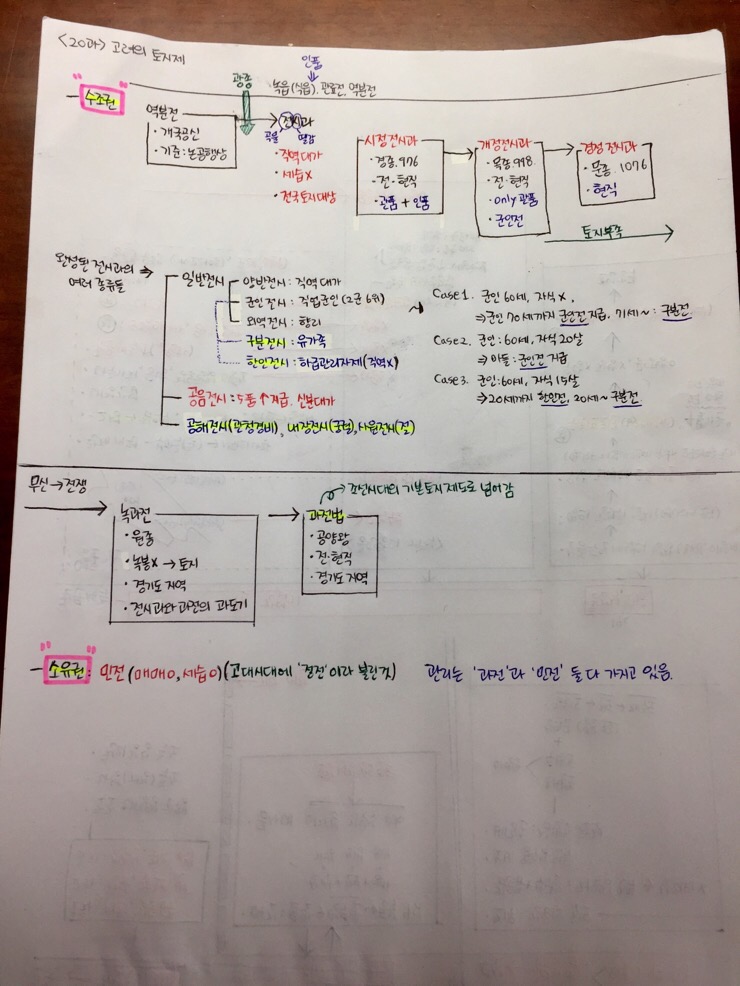 <20과> 고려의 토지제
인품
녹읍(식읍), 관료전, 역분전
광종
- "수조권"
역분전
· 개국공신
· 기준:논공행상
전시과
곡물 땔감
· 직역대가
· 세습x
· 전국토지대상
시정전시과
· 경종.976
· 전·현직
· 관품+인품
개정전시과
· 목종.998.
· 전·현직
· only 관품
· 군인전
경정전시과
· 문종. 1076
· 현직
토지부족
완성된 전시과의
여러 종류들
일반전시
양반전시:직역대가
군인전시 : 직업군인(2군6위)
외역전시:향리
구분전시:유가족
한인전시:하급관리자제(직역x)
공음전시:5품↑지급. 신분대가
공해전시(관청경비), 내장전시(궁궐), 사원전시(절)
Case1. 군인 60세, 자식x.
⇒군인 70세까지 군인전 지급. 71세~: 구분전
Case2. 군인:60세, 자식20살
⇒아들:군인전 지급
Case3. 군인:60세, 자식15살
⇒20세까지 한인전, 20세~ 구분전
무신→전쟁
녹과전
· 원종
· 녹봉x → 토지
· 경기도 지역
· 전시과와 과전의 과도기
조선시대의 기본토지제도로 넘어감
과전법
· 공양왕
· 전·현직
· 경기도 지역
- "소유권": 민전(매매o, 세습o)(고대시대에 '정전'이라 불린것) 관리는 '과전'과 '민전' 둘 다 가지고 있음.